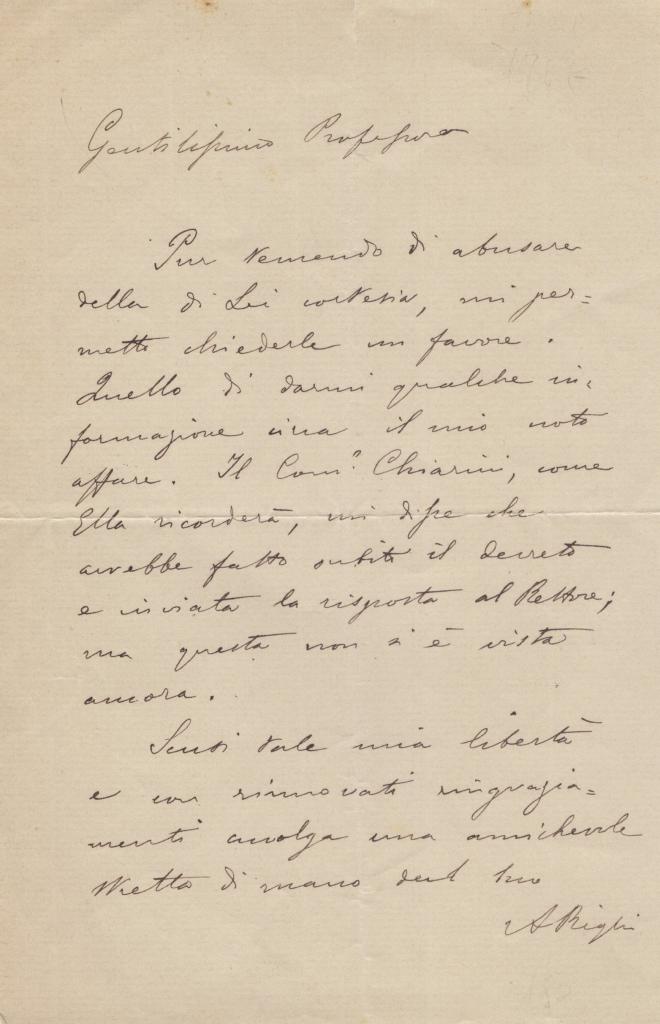 Gentilissimo Professore
Pur temendo di abusare
della di Lei cortesia, mi per=
metto chiederle un favore.
Quello di darmi qualche in=
formazione circa il mio noto
affare. Il Comre Chiarini, come
Ella ricorderà, mi disse che
avrebbe fatto subito il decreto
e inviata la risposta al Rettore;
ma questa non si è vista
ancora.
Scusi tale mia libertà
e con rinnovati ringrazia=
menti accolga una amichevole
stretta di mano dal suo
A Righi